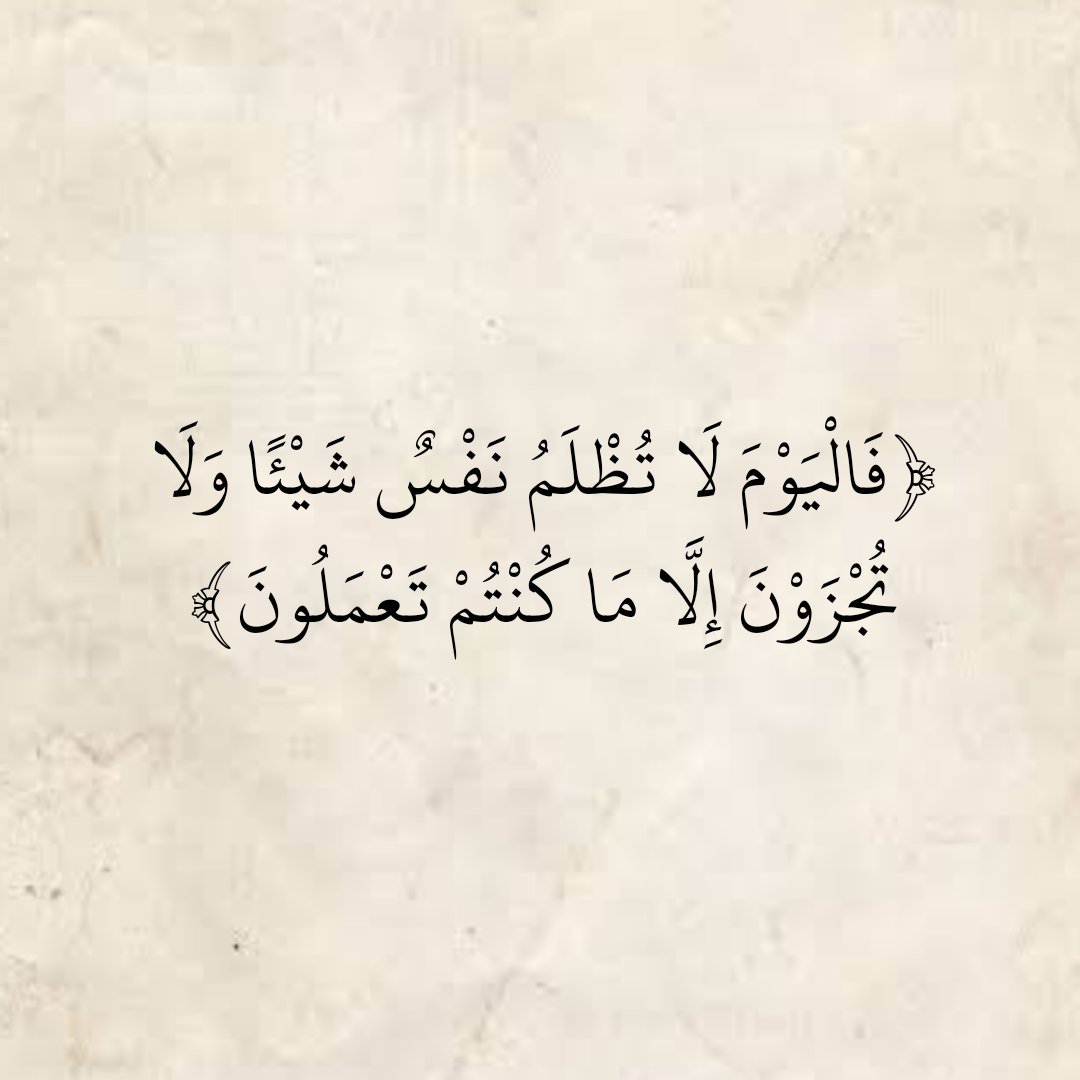 ﴿فَالْيَوْمَ لَا تُظْلَمُ نَفْسٌ شَيْئًا وَلَا
تُجْزَوْنَ إِلَّا مَا كُنْتُمْ تَعْمَلُونَ﴾